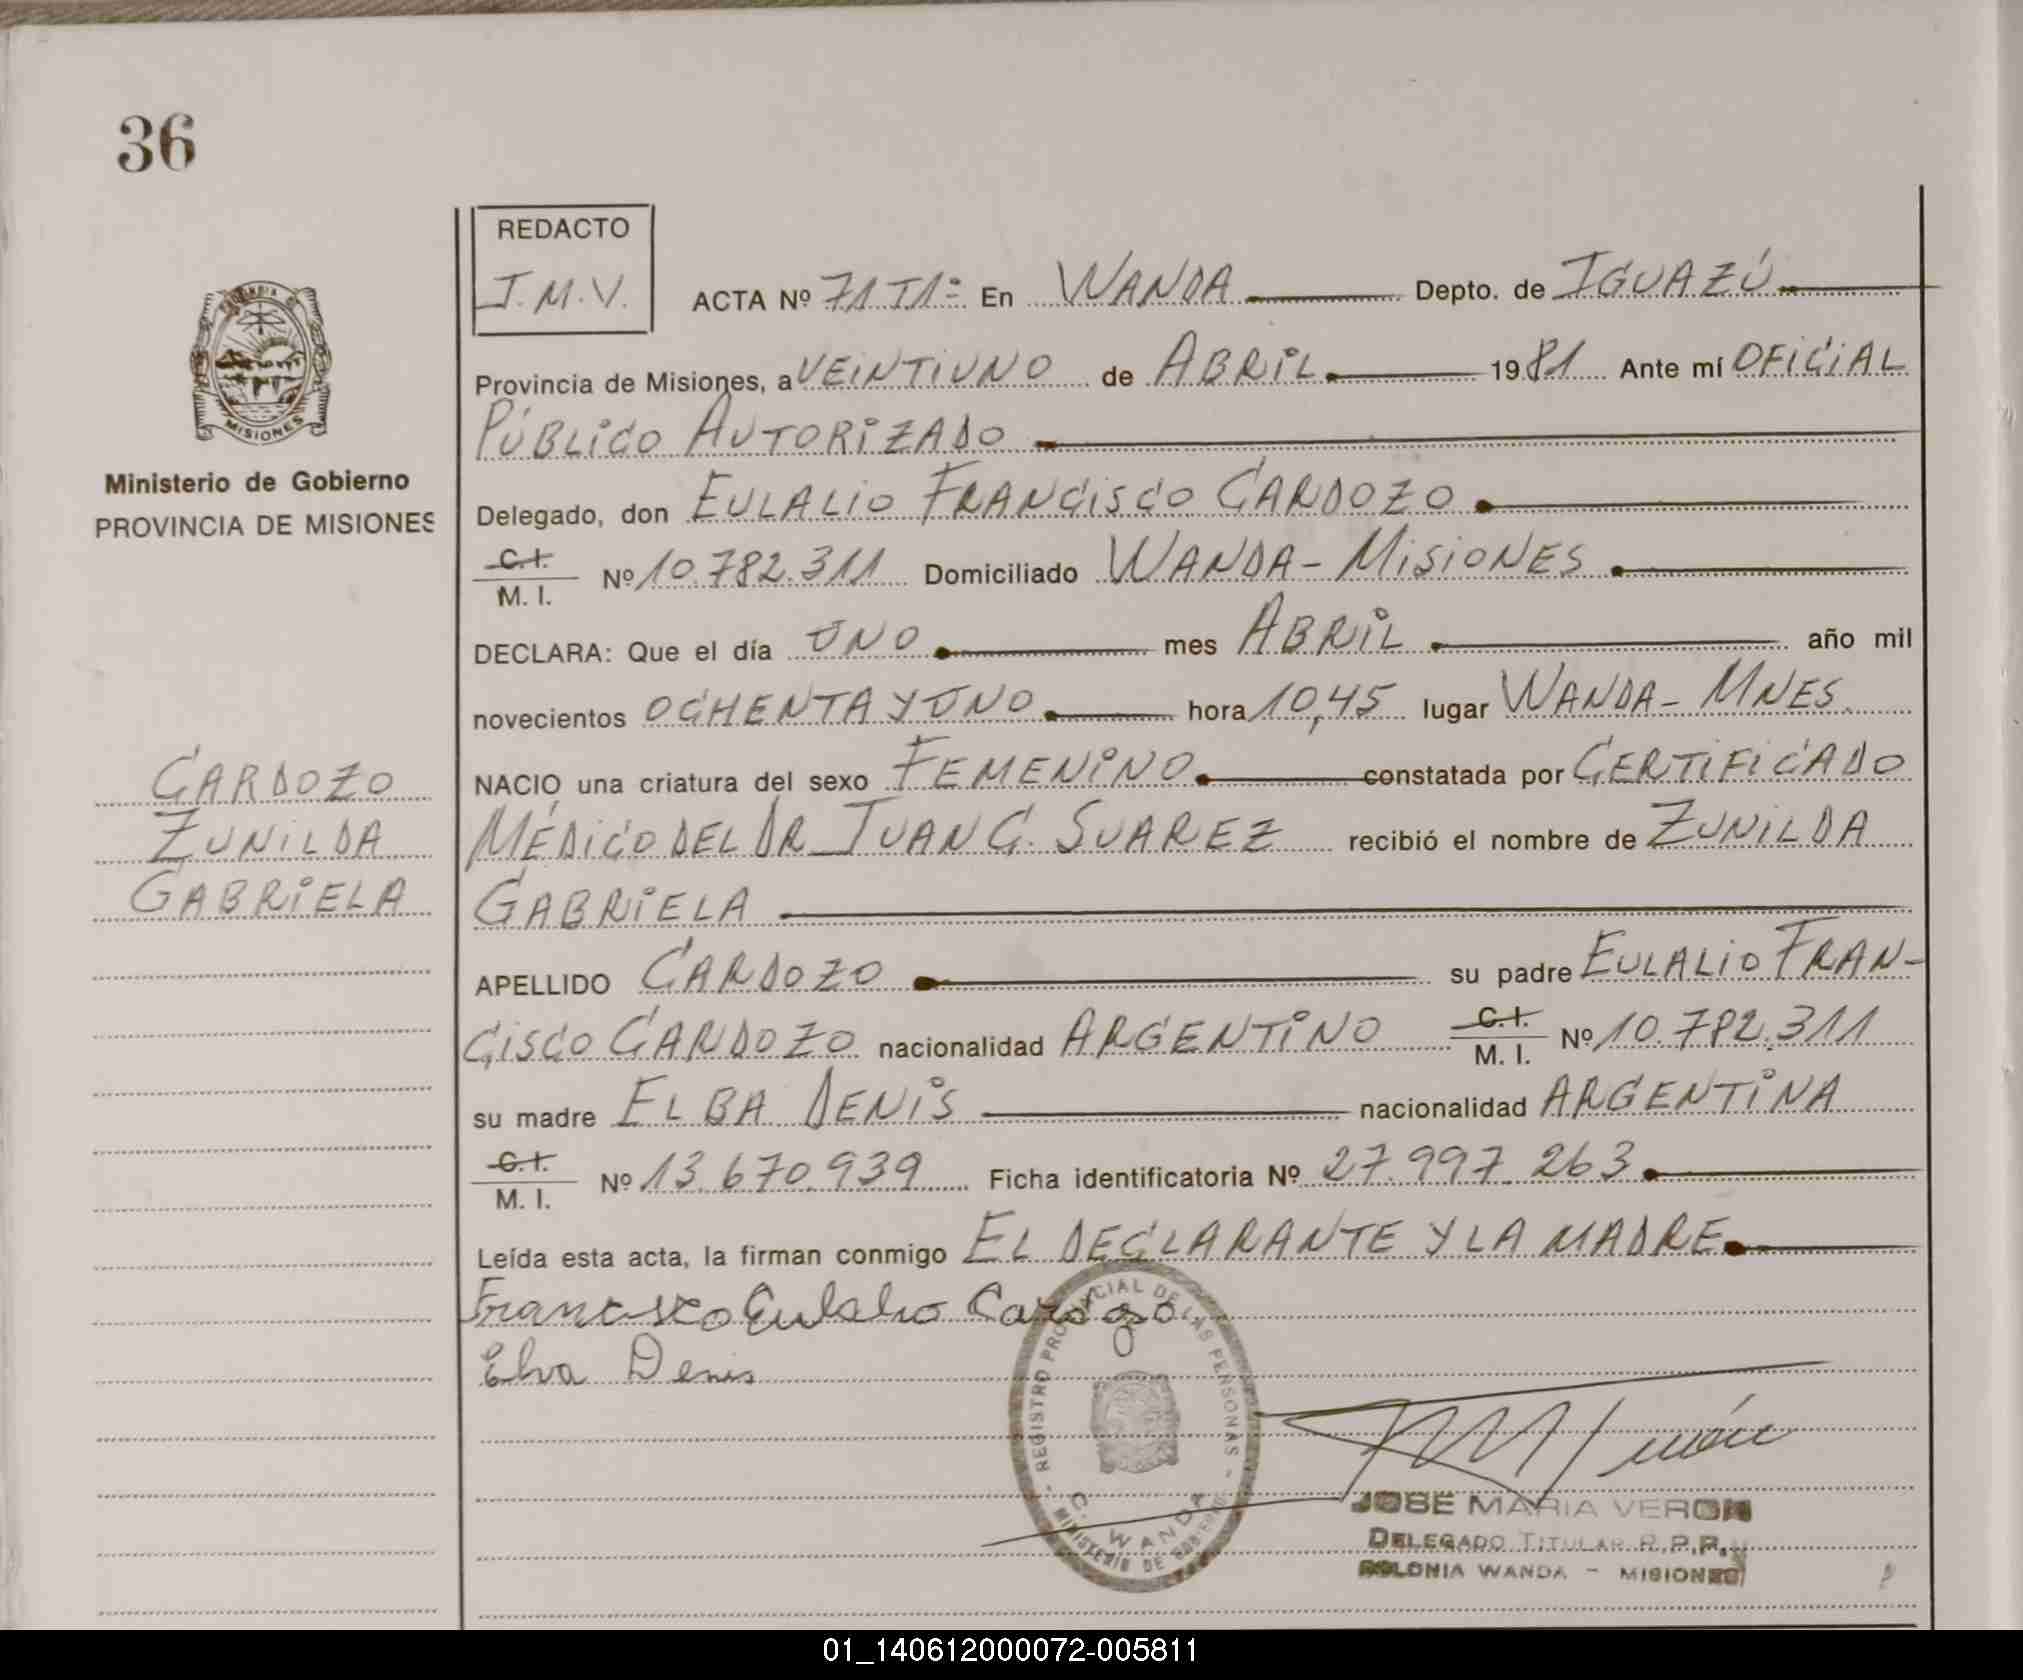 36
REDACTO
J.M.V.
ACTA Nº 71 T1º En WANDA Depto. de IGUAZÚ
Provincia de Misiones, a VEINTIUNO de ABRIL 1981 Ante mí OFICIAL
PÚBLICO AUTORIZADO
Delegado, don EULALIO FRANCISCO CARDOZO
C.I.
M. I. Nº 10.782.311 Domiciliado WANDA - MISIONES
DECLARA: Que el día UNO mes ABRIL año mil
novecientos OCHENTA Y UNO hora 10,45 lugar WANDA - MNES.
NACIO una criatura del sexo FEMENINO constatada por CERTIFICADO
MÉDICO DEL DR. JUAN C. SUAREZ recibió el nombre de ZUNILDA
GABRIELA
APELLIDO CARDOZO su padre EULALIO FRAN-
CISCO CARDOZO nacionalidad ARGENTINO C.I. M. I. Nº 10.782.311
su madre ELBA DENIS nacionalidad ARGENTINA
C.I.
M. I. Nº 13.670.939 Ficha identificatoria Nº 27.997.263
Leída esta acta, la firman conmigo EL DECLARANTE Y LA MADRE
Francisco Eulalio Cardozo
Elva Denis
PROVINCIA DE
MISIONES
Ministerio de Gobierno
PROVINCIA DE MISIONES
CARDOZO
ZUNILDA
GABRIELA
REGISTRO PROVINCIAL DE LAS PERSONAS
C. WANDA
MINISTERIO DE GOBIERNO
JOSE MARIA VERON
DELEGADO TITULAR R.P.P.
COLONIA WANDA - MISIONES
01_140612000072-005811